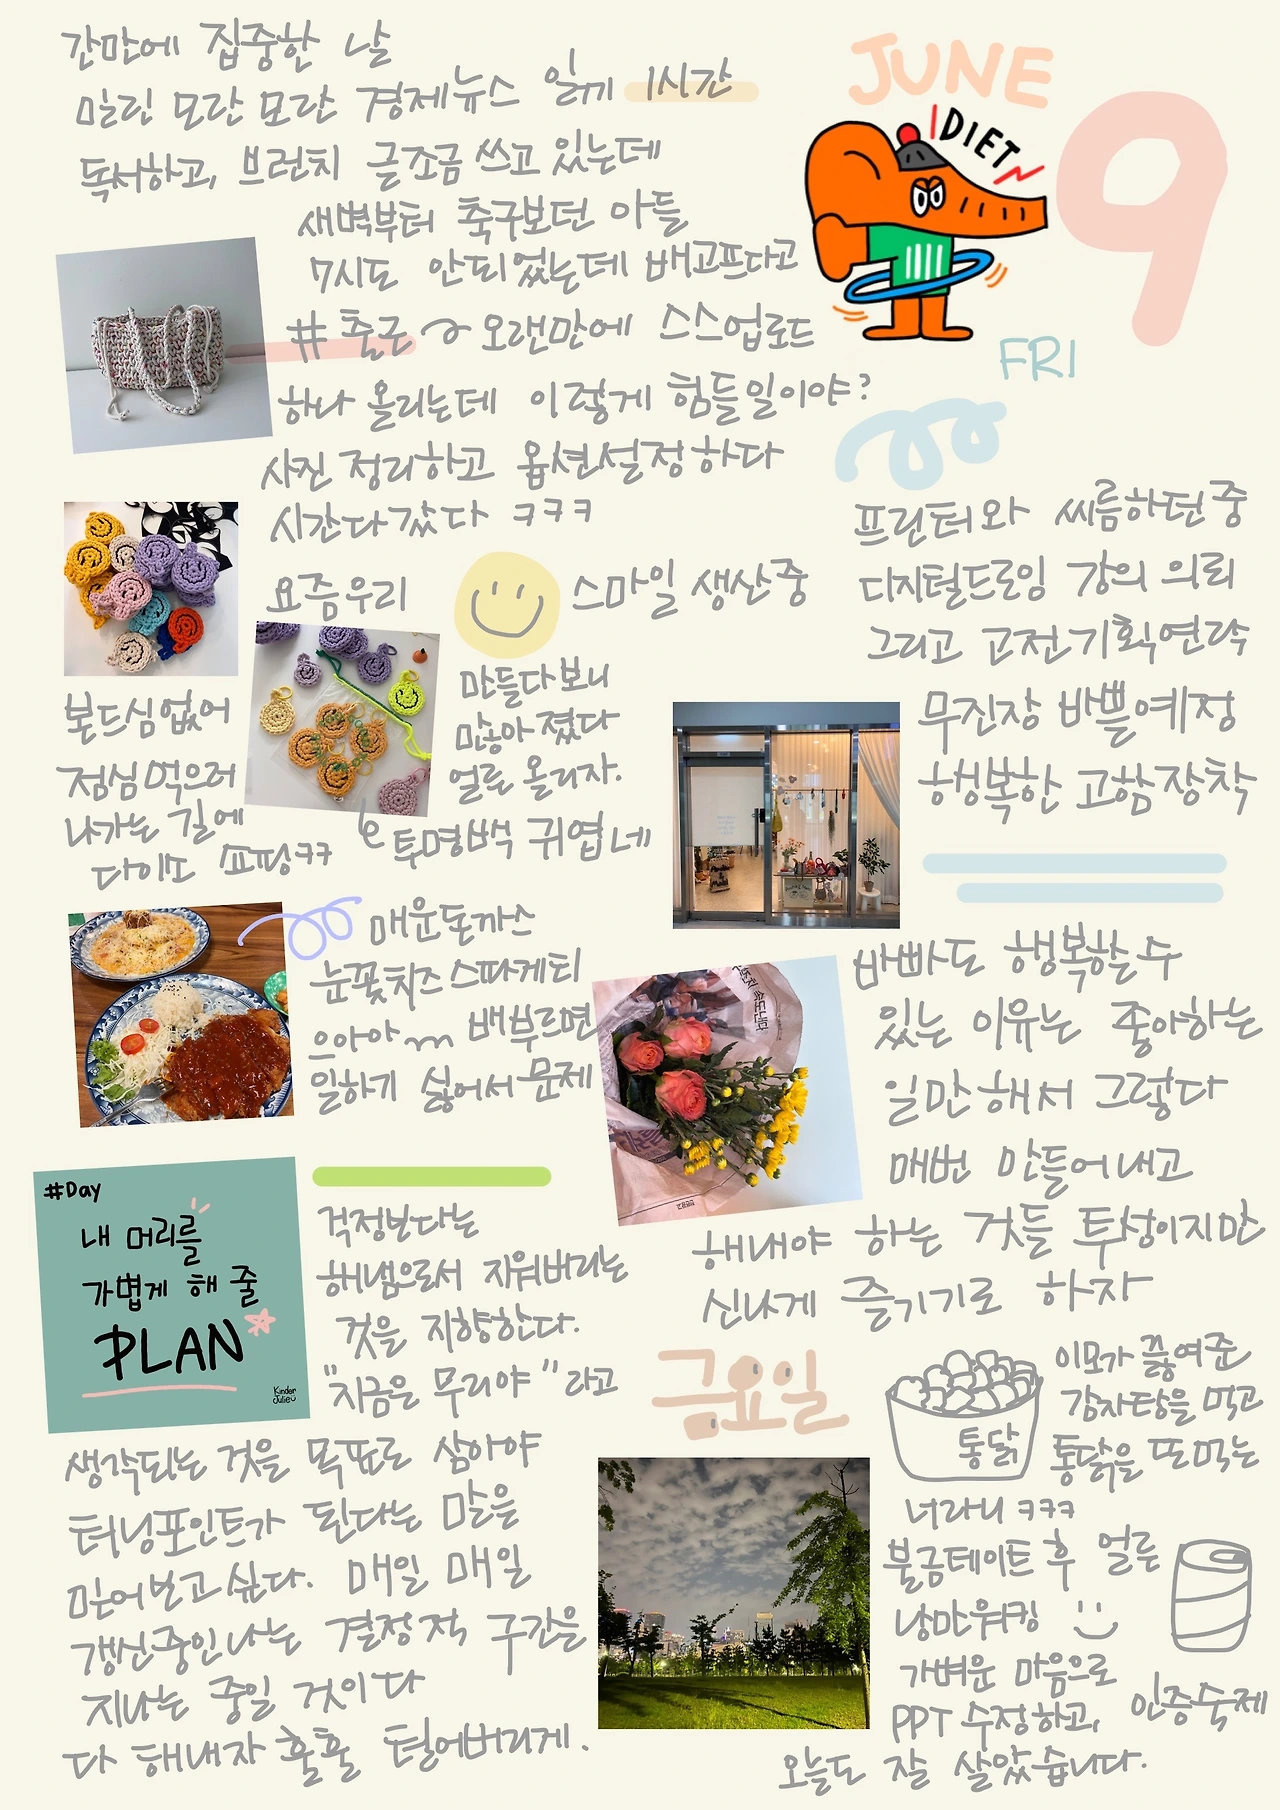 JUNE
9
FRI
DIET
간만에 집중한 날
밀린 모란 모란 경제뉴스 읽기 1시간
독서하고, 브런치 글조금 쓰고 있는데
새벽부터 축구보던 아들
7시도 안되었는데 배고프다고
# 출근 오랜만에 스스업로드
하나 올리는데 이렇게 힘들일이야?
사진 정리하고 옵션설정하다
시간다갔다 ㅋㅋㅋ
요즘우리
스마일 생산중
만들다보니
많아졌다
얼른 올리자.
투명백 귀엽네
본드심없어
점심먹으러
나가는 길에
다이소 쇼핑ㅋㅋ
매운돈까스
눈꽃치즈스파게티
으아아 배부르면
일하기 싫어서 문제
프린터와 씨름하던중
디지털드로잉 강의 의뢰
그리고 고전기획연락
무진장 바쁠예정
행복한 고함장착
바빠도 행복할수
있는 이유는 좋아하는
일만해서 그렇다
매번 만들어내고
해내야 하는 것들 투성이지만
신나게 즐기기로 하자
#Day
내 머리를
가볍게 해 줄
PLAN
Kinder
Julie
걱정난다는
해냄으로서 지워버리는
것을 지향한다.
"지금은 무리야" 라고
생각되는 것을 목표로 삼아야
터닝포인트가 된다는 말을
믿어보고싶다. 매일 매일
갱신중인나는 결정적 구간을
지나는 중일 것이다
다 해내자 훌훌 털어버리게.
금요일
통닭
이모가 끓여준
감자탕을 먹고
통닭을 또먹는
너라니 ㅋㅋㅋ
불금데이트 후 얼른
낭만워킹
가벼운 마음으로
PPT 수정하고, 인증숙제
오늘도 잘 살았습니다.